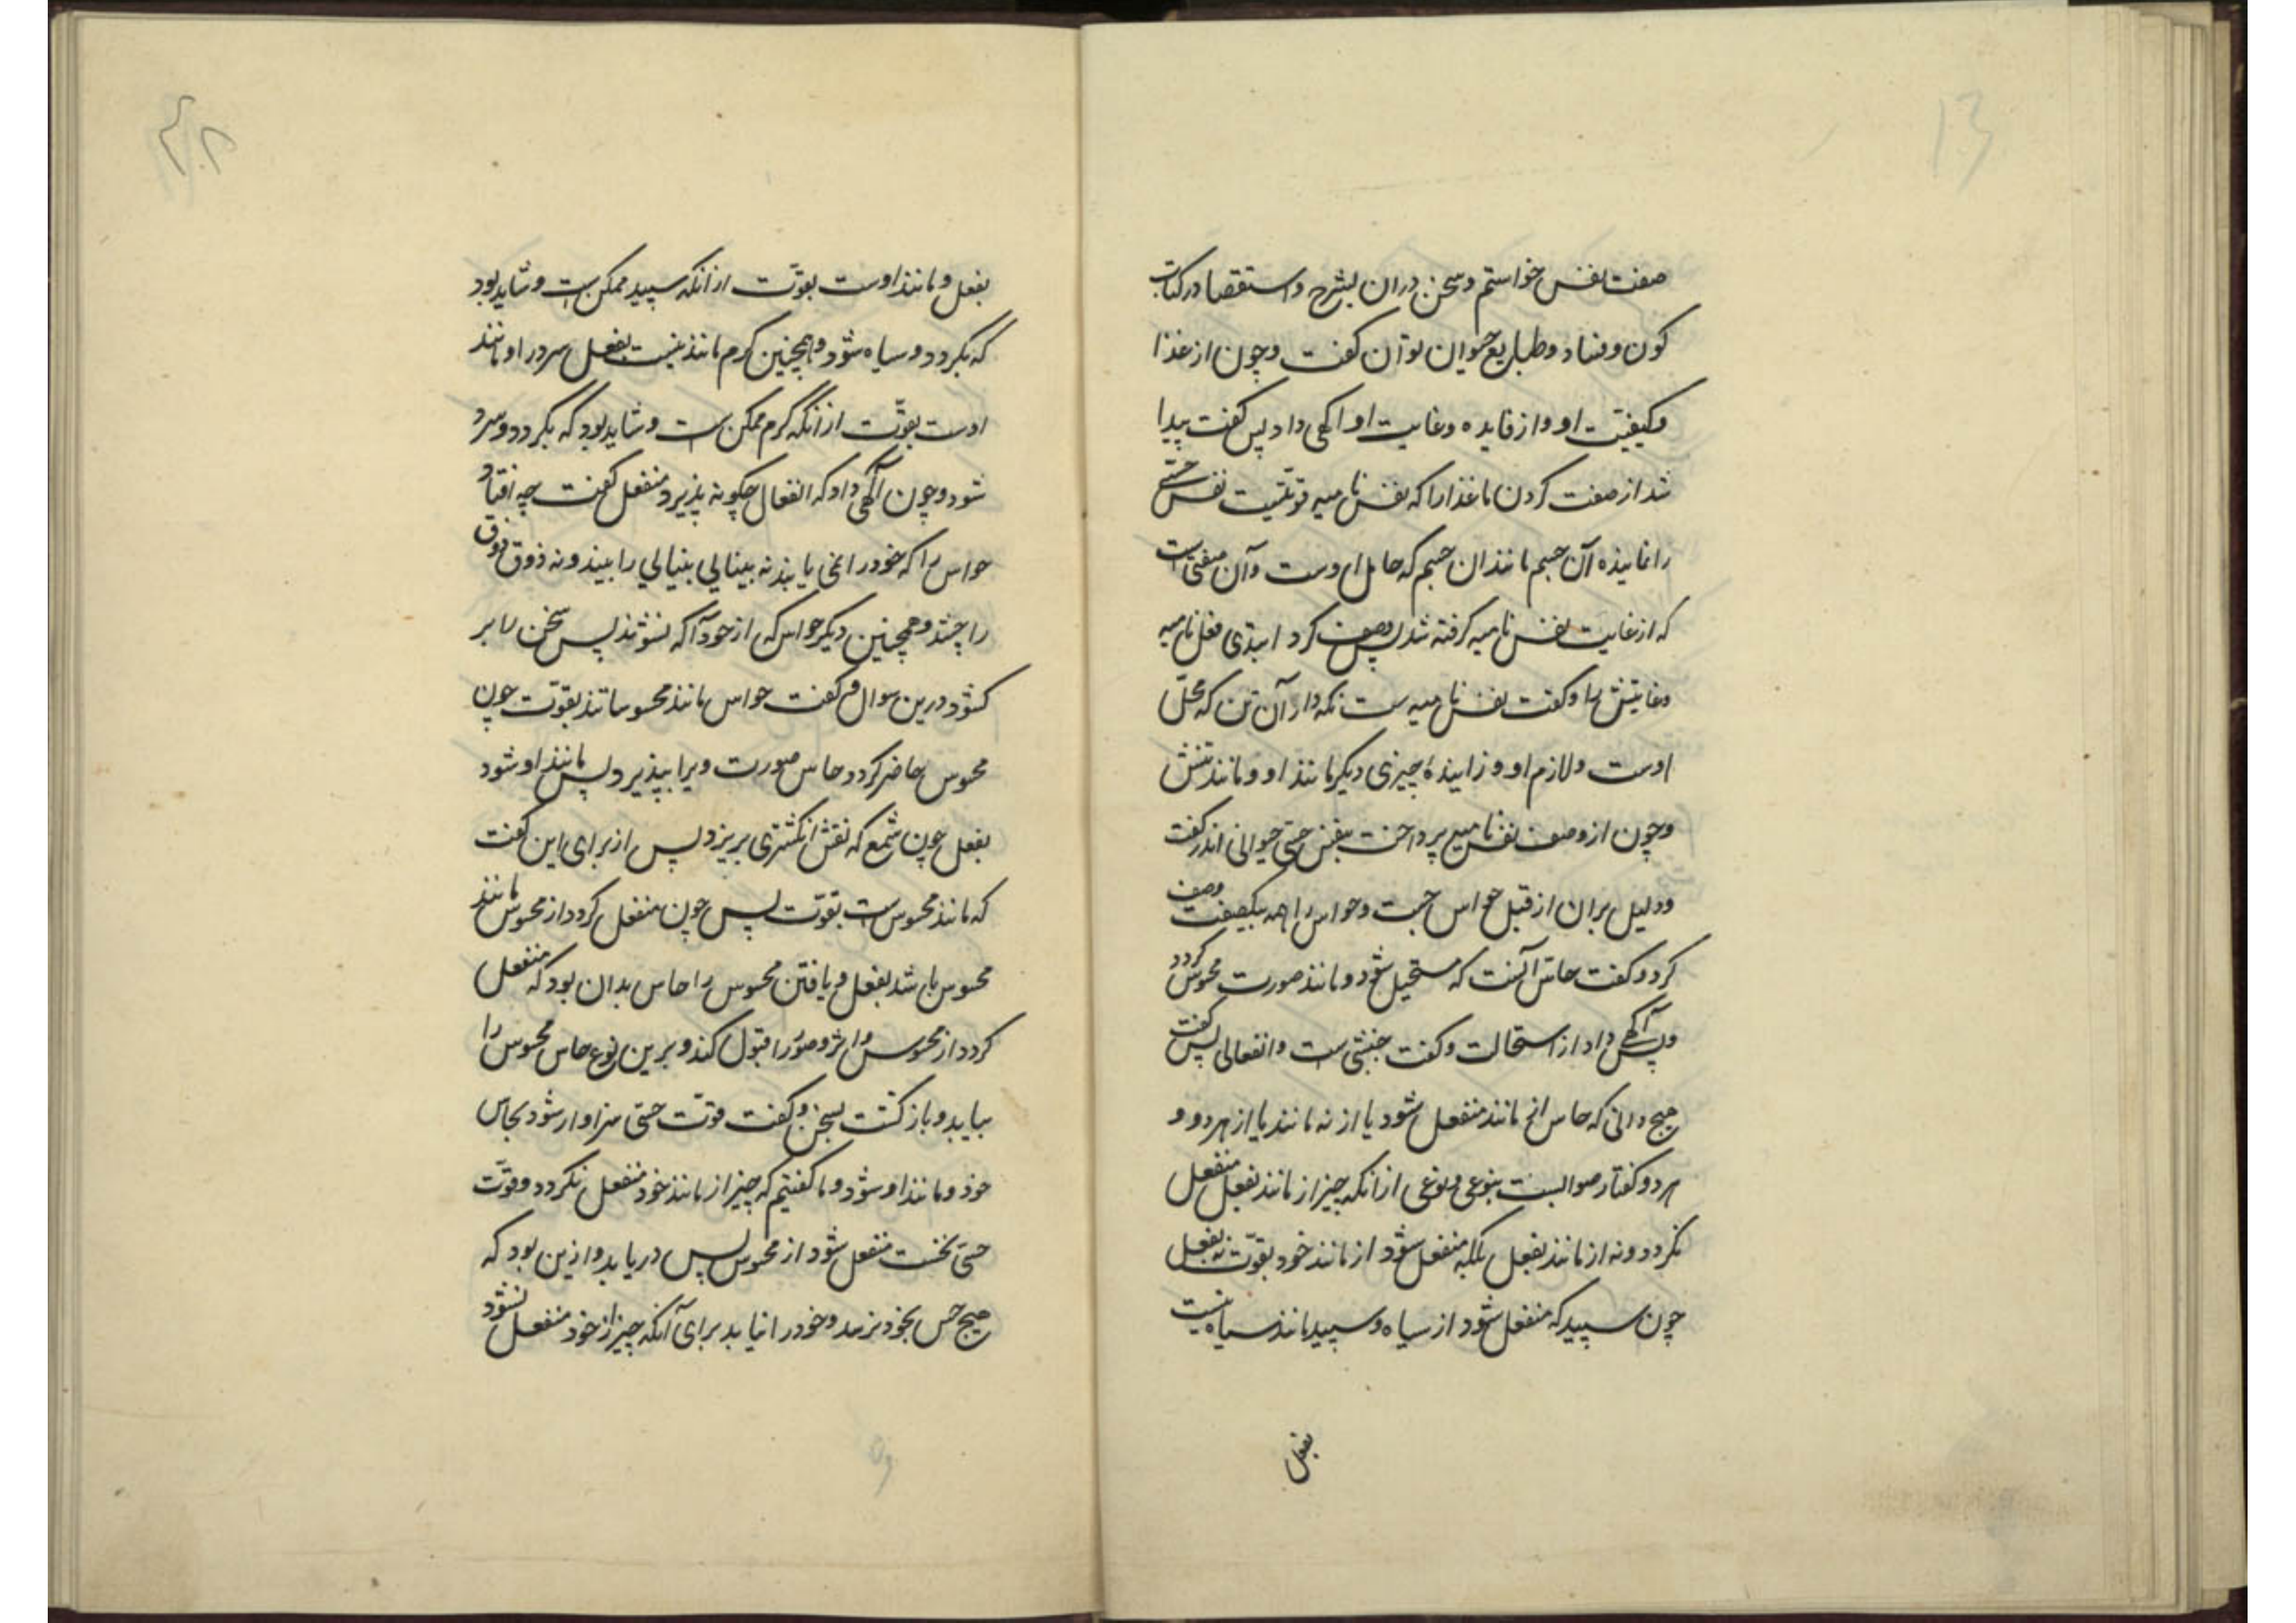 13
صفت نفس خواستم و سخن دران بشرح و استقصا در کتاب
کون و فساد و طبایع حیوان توان کفت و چون از غذا
و کیفیت او و از فایده و غایت او اکهی داد پس کفت پیدا
شد از صفت کردن ما غذا را که نفس نامیه قوتیست نفس
را نماینده آن جسم مانند ان جسم که حامل اوست و آن صفتی است
که از غایت نفس نامیه کرفته شد پس وصف کرد ابتدی فعل نامیه
و غایتش را و کفت نفس نامیه ست نکه دار آن تن که محلّ
اوست و لازم او و زایندهٔ چیزی دیکر مانند او و مانند تنش
و چون از وصف نفس نامیه پرداخت بنفس حسّی حیوانی اندر کفت
و دلیل بران از قبل حواس جست و حواس را همه بیکصفت وصف
کرد و کفت حاسّ آنست که مستحیل شود و مانند صورت محسوس کردد
و پس آکهی داد از استحالت و کفت جنبشی ست و انفعالی پس کفت
هیچ دانی که حاس از مانند منفعل شود یا از نه مانند یا از هر دو و
هر دو کفتار صوابست بنوعی و نوعی از انکه چیز از مانند بفعل منفعل
نکردد و نه از نامانند بفعل بلکه منفعل شود از مانند خود بقوّت نه بفعل
چون سپید که منفعل شود از سیاه و سپید مانند سیاه نیست
بفعل
بفعل و مانند اوست بقوّت از انکه سپید ممکن است و شاید بود
که بکردد و سیاه شود و همچنین کرم مانند نیست بفعل سرد را و مانند
اوست بقوّت از انکه کرم ممکن ست و شاید بود که بکردد و سرد
شود و چون آکهی داد که انفعال چکونه پذیرد منفعل کفت چه افتاد
حواس را که خود را نمی یابند نه بینائی بینائی را بیند و نه ذوق ذوق
را چشد و همچنین دیکر حواس که از خود آکه نشوند پس سخن را بر
کشود درین سوال و کفت حواس مانند محسوساتند بقوّت چون
محسوس حاضر کردد حاس صورت ویرا بپذیرد پس مانند او شود
بفعل چون شمع که نقش انکشتری بپذیرد پس از برای این کفت
که مانند محسوس ست بقوّت پس چون منفعل کردد از محسوس مانند
محسوس باشد بفعل و یافتن محسوس را حاس بدان بود که منفعل
کردد از محسوس و اثر و صور را قبول کند و برین نوع حاس محسوس را
بیابد و باز کشت بسخن و کفت قوّت حسّی سزاوار شود بحاس
خود و مانند او شود و ما کفتیم که چیز از مانند خود منفعل نکردد و قوّت
حسّی نخست منفعل شود از محسوس پس دریابد و ازین بود که
هیچ حس بخود نرسد و خود را نیابد برای آنکه چیز از خود منفعل نشود